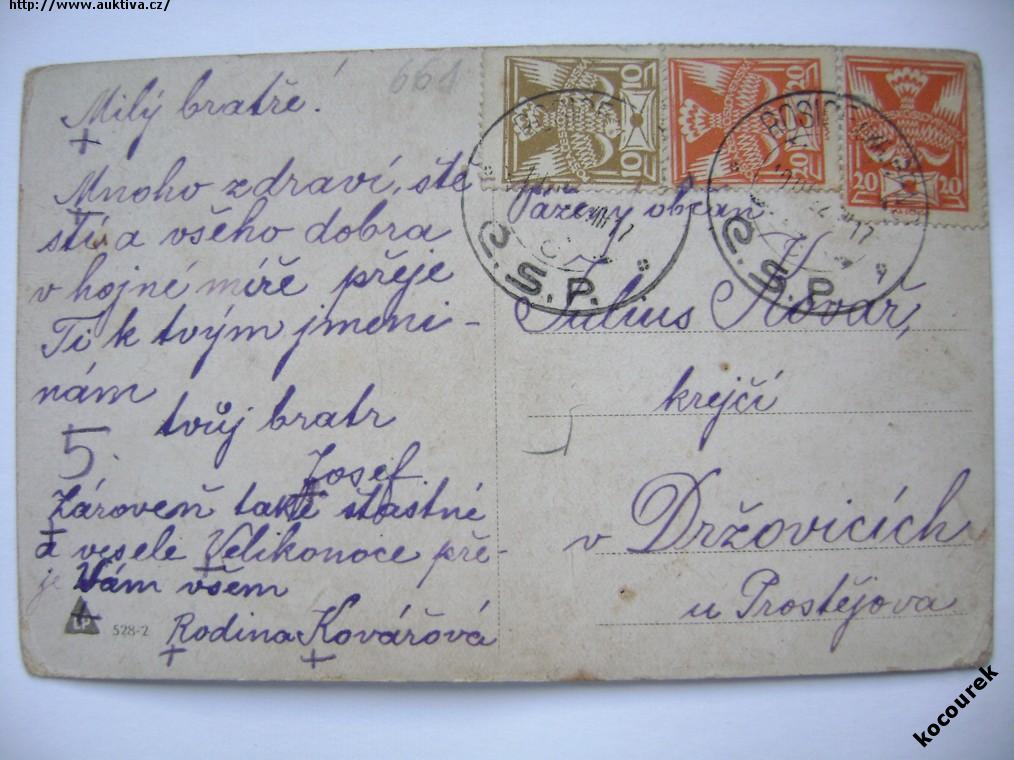 http://www.auktiva.cz/
661
Milý bratře!
Mnoho zdraví, ště
stí a všeho dobra
v hojné míře přeje
Ti k tvým jmeni-
nám
tvůj bratr
5.
Josef
Zároveň také šťastné
a veselé Velikonoce pře-
je Vám všem
Rodina Kovářová
LP 528-2
10 10
20 20
20 20
Č.S.P.
Č.S.P.
Vážený občan
Julius Kovář,
krejčí
v Držovicích
u Prostějova
kocourek